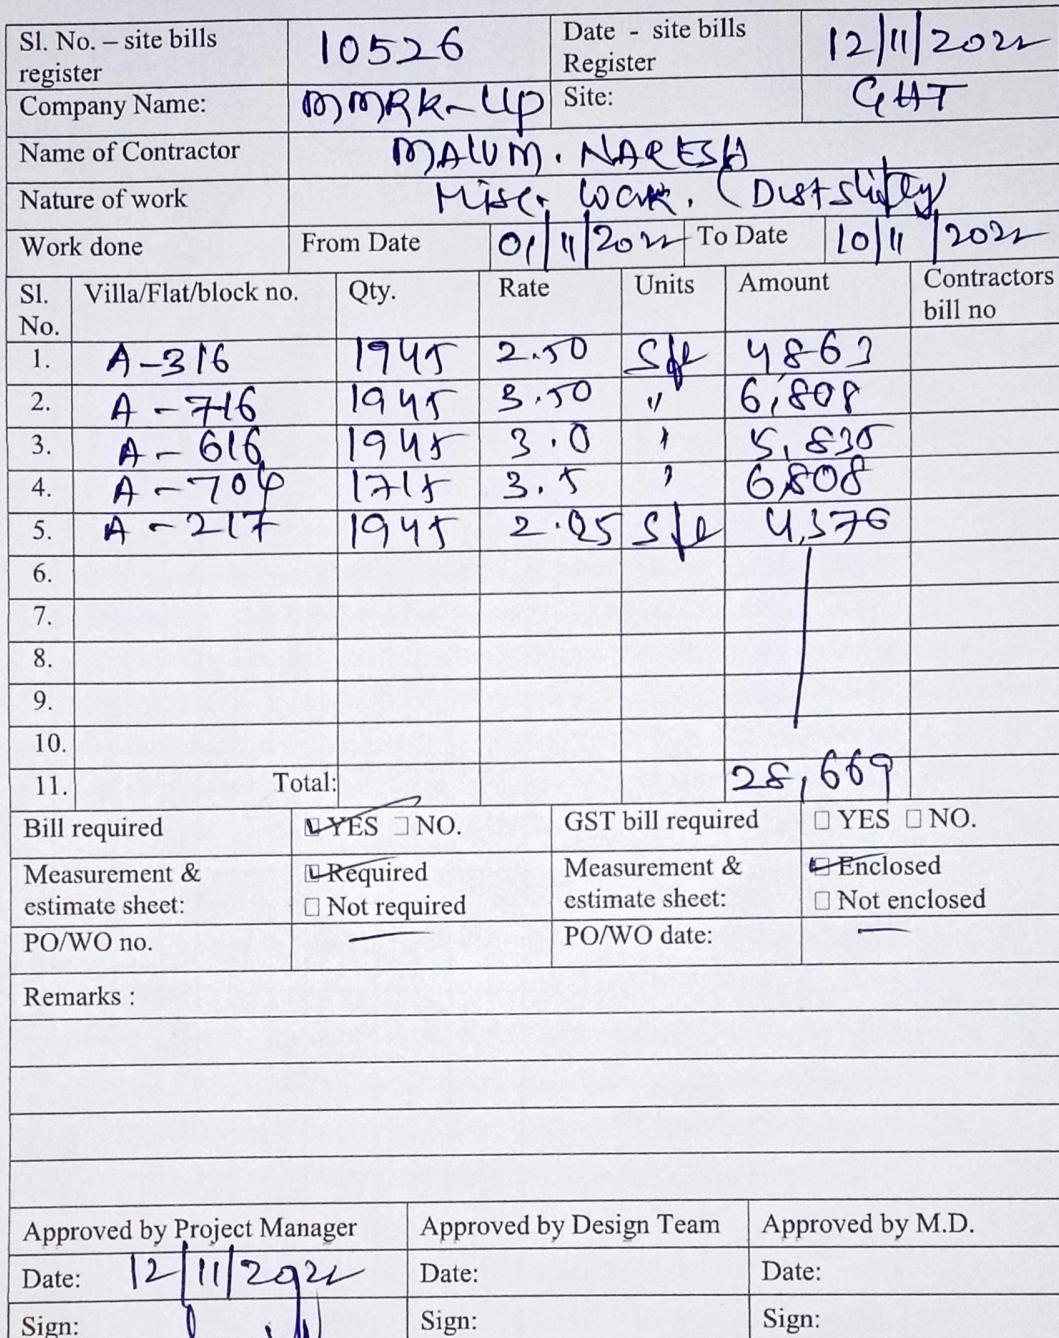 Sl. No. – site bills register 10526 Date - site bills Register 12/11/2022
Company Name: MMRK-LLP Site: GHT
Name of Contractor MALUM. NARESH
Nature of work Misc. Work. (Dust
Work done From Date 01/11/2022 To Date 10/11/2022
Sl. No. Villa/Flat/block no. Qty. Rate Units Amount Contractors bill no
1. A-316 1945 2.50 Sft 4863
2. A-716 1945 3.50 " 6,808
3. A-616 1945 3.0 " 5,835
4. A-704 1715 3.5 " 6808
5. A-217 1945 2.25 Sft 4,376
6.
7.
8.
9.
10.
11. Total: 28,669
Bill required ☑ YES ☐ NO. GST bill required ☐ YES ☐ NO.
Measurement & estimate sheet: ☑ Required ☐ Not required Measurement & estimate sheet: ☑ Enclosed ☐ Not enclosed
PO/WO no. — PO/WO date: —
Remarks :
Approved by Project Manager Approved by Design Team Approved by M.D.
Date: 12/11/2022 Date: Date:
Sign: Sign: Sign: